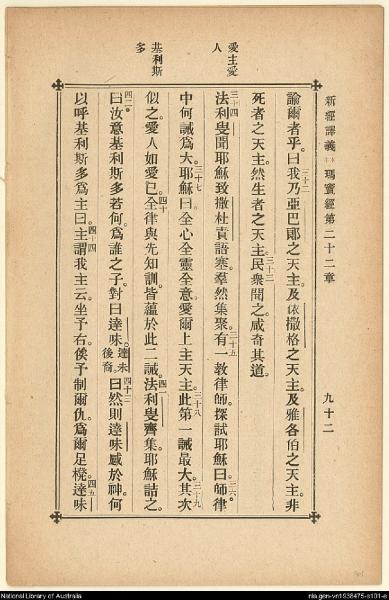 新經譯義 瑪竇經第二十二章 九十二
愛主愛人
基利斯多
諭爾者乎。曰我乃亞巴郎之天主。及依撒格之天主。及雅各伯之天主。非
三十二
死者之天主。然生者之天主。民衆聞之。咸奇其道。
三十三
法利叟聞耶穌致撒杜責語塞。羣然集聚。有一教律師。探試耶穌曰。師。律
三十四 三十五 三六
中何誡爲大。耶穌曰。全心全靈全意愛爾上主天主。此第一誡最大。其次
三十七 三十八 三十九
似之。愛人如愛己。全律與先知訓。皆蘊於此二誡。法利叟齊集。耶穌詰之
四十 四一
曰。汝意基利斯多若何。爲誰之子。對曰達味。達未後裔。曰然則達味感於神。何
四二 四十三
以呼基利斯多爲主曰。主謂我主云。坐予右。俟予制爾仇。爲爾足櫈。達味
四十四 四五
National Library of Australia
nla.gen-vn1938475-s101-e